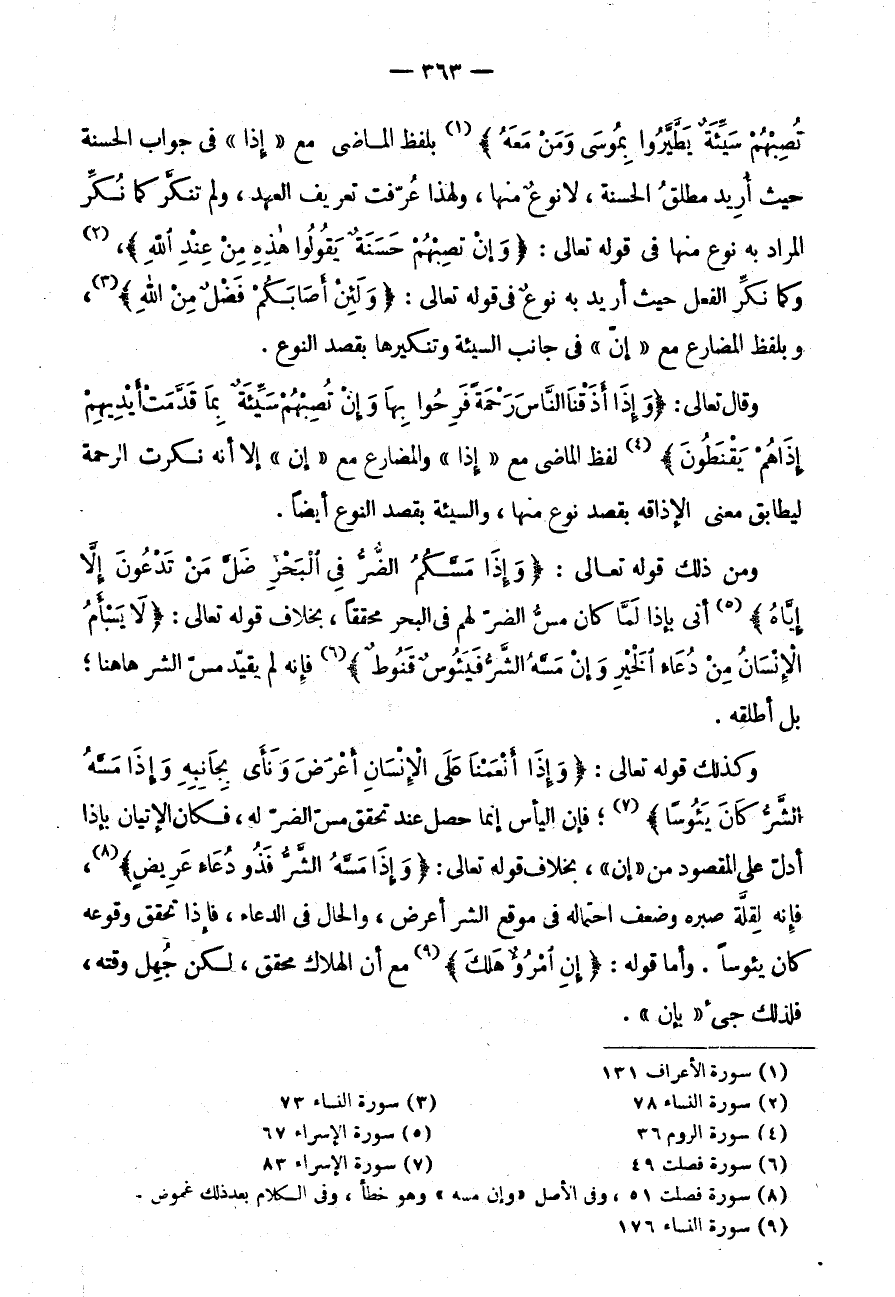 — ٣٦٣ —
تُصِبْهُمْ سَيِّئَةٌ يَطَّيَّرُوا بِمُوسَى وَمَنْ مَعَهُ ﴾ (١) بلفظ المـاضى مع « إذا » فى جواب الحسنة
حيث أُريد مطلقُ الحسنة ، لانوعٌ منها ، ولهذا عُرّفت تعريف العهد ، ولم تنكَّر كما نُكِّر
المراد به نوع منها فى قوله تعالى : ﴿ وَإنْ تصِبْهُمْ حَسَنَةٌ يَقُولُوا هٰذِهِ مِنْ عِنْدِ ٱللهِ ﴾، (٢)
وكما نكِّر الفعل حيث أريد به نوعٌ فى قوله تعالى : ﴿ وَلَئِنْ أَصَابَكُمْ فَضْلٌ مِنْ اللهِ ﴾(٣)،
وبلفظ المضارع مع « إنْ » فى جانب السيئة وتنكيرها بقصد النوع .
وقال تعالى : ﴿وَإِذَا أَذَقْنَا النَّاسَ رَحْمَةً فَرِحُوا بِهَا وَإنْ تُصِبْهُمْ سَيِّئَةٌ بِمَا قَدَّمَتْ أَيْدِيهِمْ
إِذَاهُمْ يَقْنَطُونَ ﴾ (٤) لفظ الماضى مع « إذا » والمضارع مع « إن » إلا أنه نـكرت الرحمة
ليطابق معنى الإذاقه بقصد نوع منها ، والسيئة بقصد النوع أيضاً .
ومن ذلك قوله تعـالى : ﴿ وَإِذَا مَسَّـكُمُ الضُّرُّ فِى ٱلْبَحْرِ ضَلَّ مَنْ تَدْعُونَ إِلَّا
إِيَّاهُ ﴾ (٥) أتى بإذا لَمَّا كان مسُّ الضرّ لهم فى البحر محققاً ، بخلاف قوله تعالى : ﴿ لَا يَسْأَمُ
الْإِنْسَانُ مِنْ دُعَاءِ ٱلْخَيْرِ وَإنْ مَسَّهُ الشَّرُّ فَيَئُوسٌ قَنُوطٌ ﴾(٦) فإنه لم يقيّد مسّ الشر هاهنا ؛
بل أطلقه .
وكذلك قوله تعالى : ﴿ وَإِذَا أَنْعَمْنَا عَلَى الْإِنْسَانِ أَعْرَضَ وَنَأَى بِجَانِبِهِ وَإِذَا مَسَّهُ
الشَّرُّ كَانَ يَئُوسًا ﴾ (٧) ؛ فإن اليأس إنما حصل عند تحقق مسّ الضرّ له ، فـكان الإتيان بإذا
أدلّ على المقصود من «إن» ، بخلاف قوله تعالى : ﴿ وَإِذَا مَسَّهُ الشَّرُّ فَذُو دُعَاءٍ عَرِيضٍ﴾(٨)،
فإنه لِقلَّة صبره وضعف احتماله فى موقع الشر أعرض ، والحال فى الدعاء ، فإذا تحقق وقوعه
كان يئوساً . وأما قوله : ﴿ إِنِ ٱمْرُؤٌ هَلَكَ ﴾ (٩) مع أن الهلاك محقق ، لـكن جُهِل وقته ،
فلذلك جىء « بإن » .
(١) سورة الأعراف ١٣١
(٢) سورة النساء ٧٨ (٣) سورة النساء ٧٣
(٤) سورة الروم ٣٦ (٥) سورة الإسراء ٦٧
(٦) سورة فصلت ٤٩ (٧) سورة الإسراء ٨٣
(٨) سورة فصلت ٥١ ، وفى الأصل «وإن مسه » وهو خطأ ، وفى الـكلام بعد ذلك غموض .
(٩) سورة النساء ١٧٦